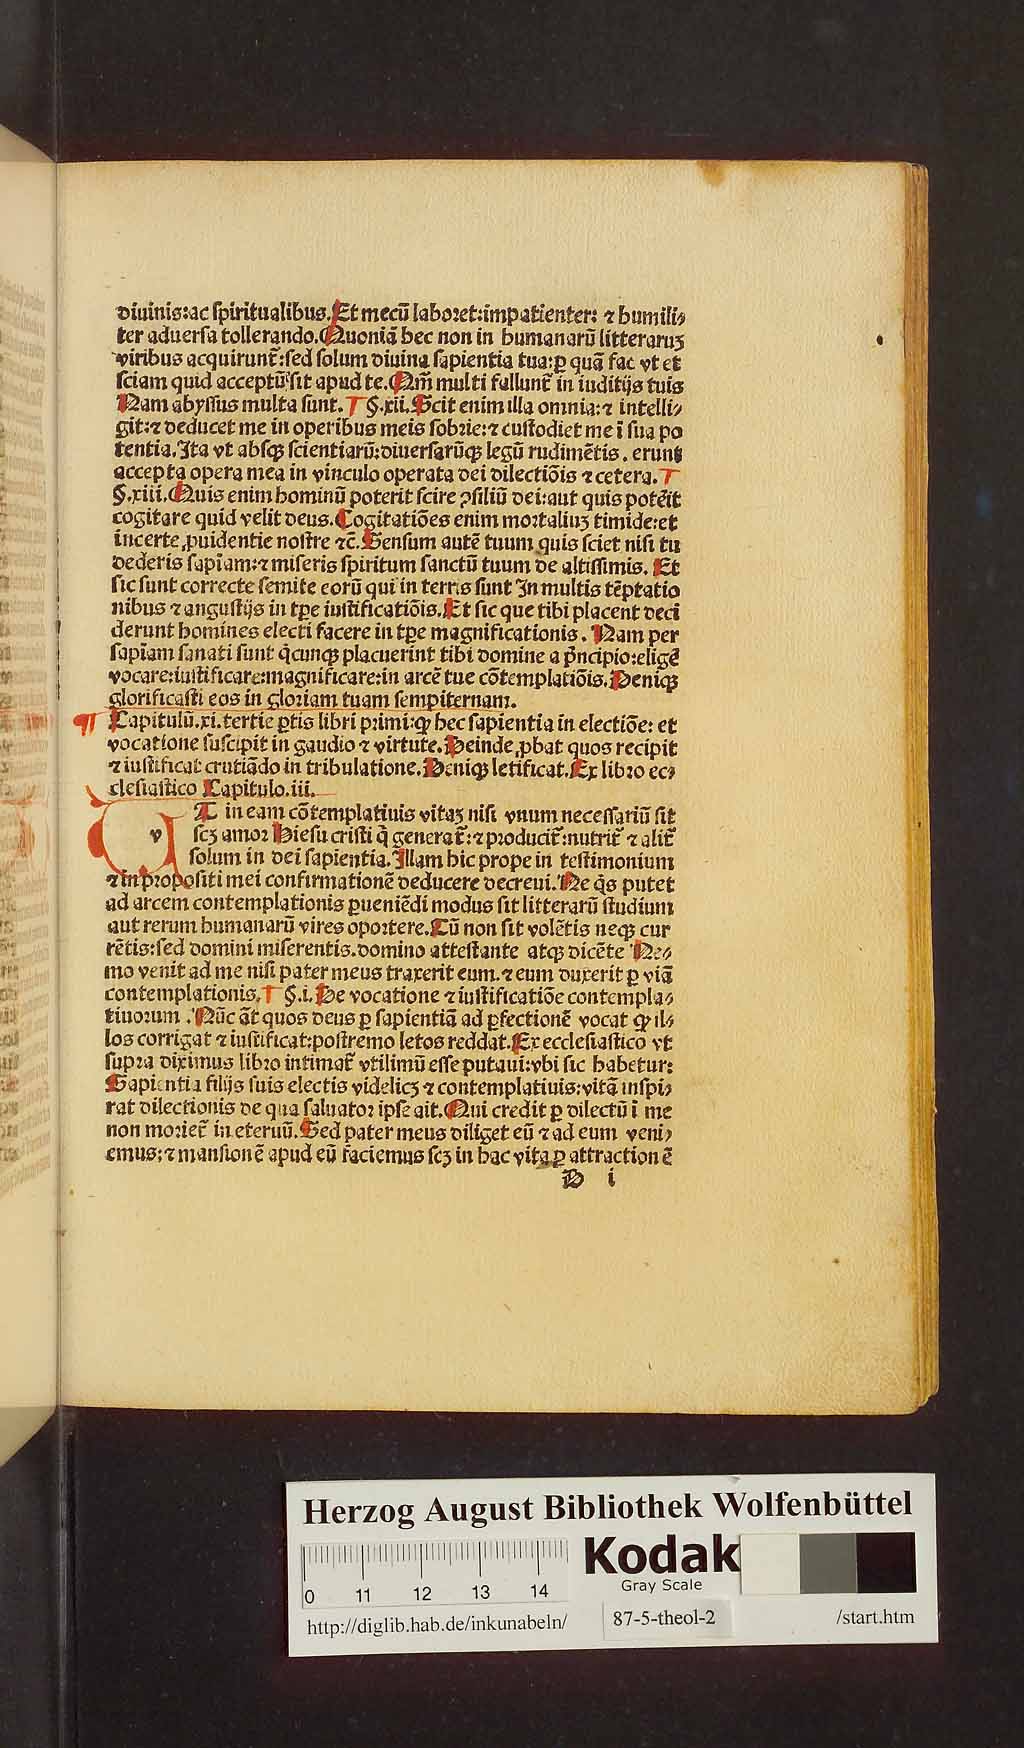 diuinis:ac spiritualibus.Et mecū laboret:impatienter: ⁊ humili⸗
ter aduersa tollerando.Quoniā hec non in humanarū litteraruꝫ
viribus acquirunt̄:sed solum diuina sapientia tua:ꝑ quā fac vt et
sciam quid acceptū sit apud te.Qm̄ multi fallunt̄ in iuditijs tuis
Nam abyssus multa sunt. §.xii.Scit enim illa omnia:⁊ intelli⸗
git:⁊ deducet me in operibus meis sobrie:⁊ custodiet me ī sua po
tentia.Ita vt absqꝫ scientiarū:diuersarūqꝫ legū rudimētis. erunt
accepta opera mea in vinculo operata dei dilectiōis ⁊ cetera.
§.xiii.Quis enim hominū poterit scire ꝯsiliū dei:aut quis poteīt
cogitare quid velit deus.Cogitatiōes enim mortaliuꝫ timide:et
incerte ꝓuidentie nostre ⁊c̄.Sensum autē tuum quis sciet nisi tu
dederis sapīam:⁊ miseris spiritum sanctū tuum de altissimis. Et
sic sunt correcte semite eorū qui in terris sunt In multis tēptatio
nibus ⁊ angustijs in tꝑe iustificatiōis.Et sic que tibi placent deci
derunt homines electi facere in tꝑe magnificationis. Nam per
sapīam sanati sunt q̄cunqꝫ placuerint tibi domine a p̄ncipio:eligē
vocare:iustificare:magnificare:in arcē tue cōtemplatiōis.Deniqꝫ
glorificasti eos in gloriam tuam sempiternam.
¶ Capitulū.xi.tertie ꝑtis libri primi:qꝫ hec sapientia in electiōe: et
vocatione suscipit in gaudio ⁊ virtute.Deinde ꝓbat quos recipit
⁊ iustificat crutiādo in tribulatione.Deniqꝫ letificat.Ex libro ec⸗
clesiastico Capitulo.iii.
v
At in eam cōtemplatiuis vitaꝫ nisi vnum necessariū sit
scꝫ amor Hiesu cristi q̄ generat̄:⁊ producit̄:nutrit̄ ⁊ alit̄
solum in dei sapientia.Illam hic prope in testimonium
⁊ in propositi mei confirmationē deducere decreui.Ne q̄s putet
ad arcem contemplationis ꝑueniēdi modus sit litterarū studium
aut rerum humanarū vires oportere.Cū non sit volētis neqꝫ cur
rētis:sed domini miserentis.domino attestante atqꝫ dicēte Ne⸗
mo venit ad me nisi pater meus traxerit eum.⁊ eum duxerit ꝑ viā
contemplationis. §.i.De vocatione ⁊ iustificatiōe contempla⸗
tiuorum.Nūc āt quos deus ꝑ sapientiā ad ꝑfectionē vocat qꝫ il⸗
los corrigat ⁊ iustificat:postremo letos reddat.Ex ecclesiastico vt
supra diximus libro intimat̄ vtilimū esse putaui:vbi sic habetur:
Sapientia filijs suis electis videlicꝫ ⁊ contemplatiuis:vitā inspi⸗
rat dilectionis de qua saluator ipse ait.Qui credit ꝑ dilectū ī me
non moriet̄ in eternū.Sed pater meus diliget eū ⁊ ad eum veni⸗
emus:⁊ mansionē apud eū faciemus scꝫ in hac vita ꝑ attractionē
D i
Herzog August Bibliothek Wolfenbüttel
Kodak
Gray Scale
0 11 12 13 14
http://diglib.hab.de/inkunabeln/ 87-5-theol-2 /start.htm